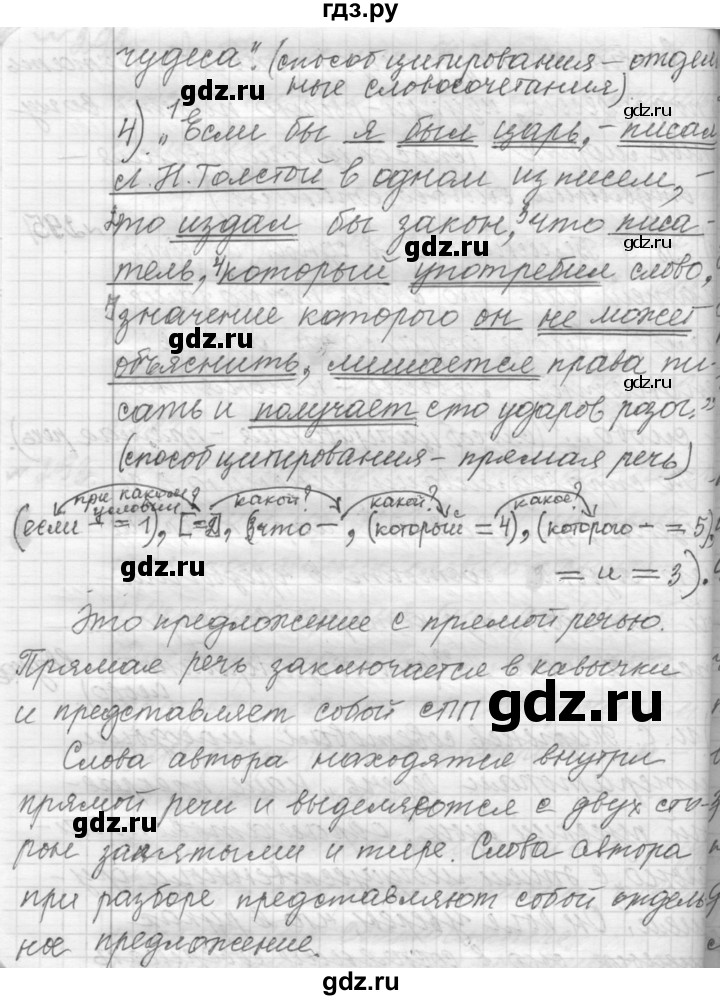 гдз.ру
чудеса". (способ цитирования – отдель
gdz.ru
ные словосочетания)
gdz.ru
4). "¹Если бы я был царь, – писал
Л.Н.Толстой в одном из писем, –
²то издал бы закон, ³что писа-
gdz.ru
тель, ⁴который употребил слово,
значение которого он не может
gdz.ru
объяснить, лишается права пи-
gdz.ru
сать и получает сто ударов розог."
gdz.ru
(способ цитирования – прямая речь)
при каком условии? какой? какой? какое?
gdz.ru
(если – = 1), [= 2], (что –, (который = 4), (которого – = 5),
= и = 3).
gdz.ru
Это предложение с прямой речью.
Прямая речь заключается в кавычки
и представляет собой СПП
gdz.ru
Слова автора находятся внутри
прямой речи и выделяются с двух сто-
gdz.ru
рон запятыми и тире. Слова автора
при разборе представляют собой отдель
ное предложение.
gdz.ru